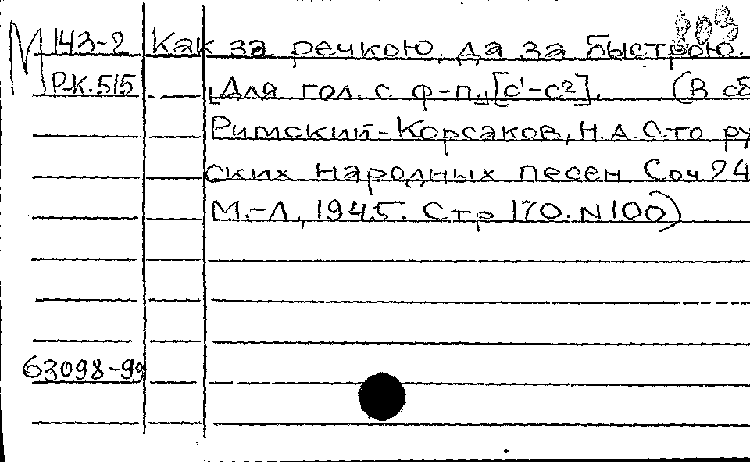 М 143-2 Как за речкою, да за быстрою.
Р-К.515 [Для гол. с ф-п.,] [c¹-c²]. (В сб
Римский-Корсаков, Н.А. Сто ру
ских народных песен Соч 24
М.-Л., 1945. Стр 170. N 100)
63098-99